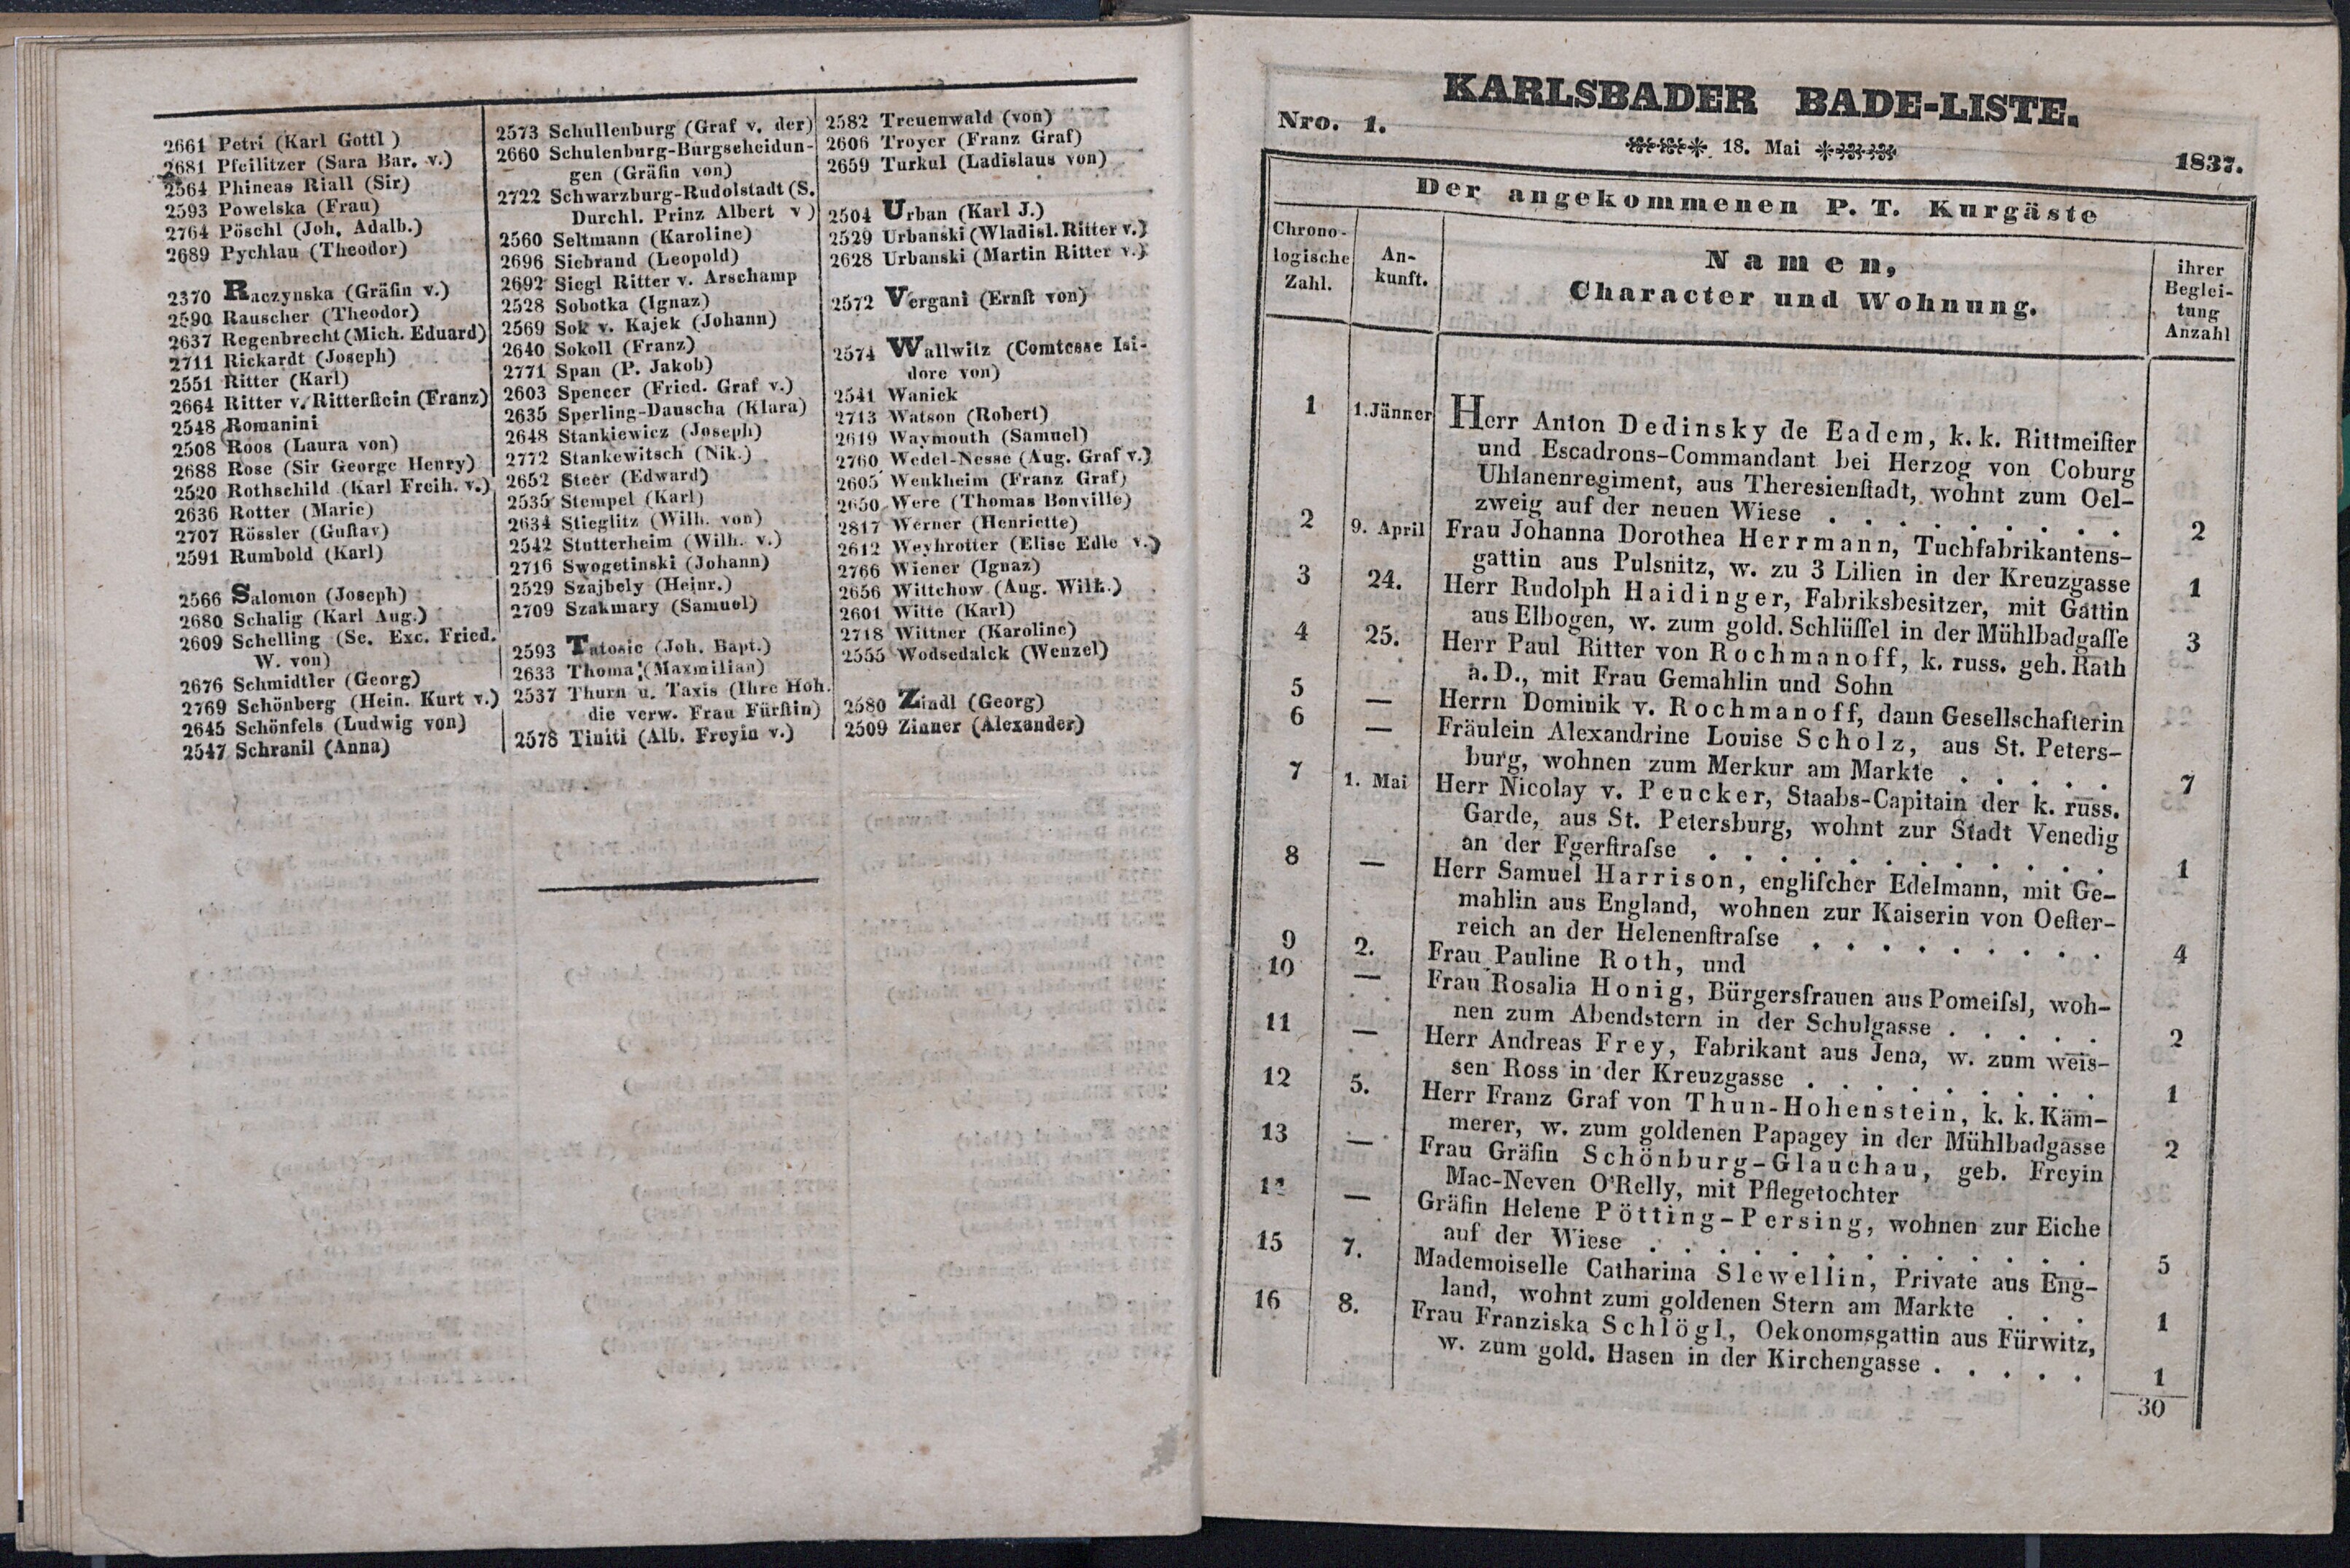 2661 Petri (Karl Gottl )
2681 Pfeilitzer (Sara Bar. v.)
2564 Phineas Riall (Sir)
2593 Powelska (Frau)
2764 Pöschl (Joh. Adalb.)
2689 Pychlau (Theodor)
2370 Raczynska (Gräfin v.)
2590 Rauscher (Theodor)
2637 Regenbrecht (Mich. Eduard)
2711 Rickardt (Joseph)
2551 Ritter (Karl)
2664 Ritter v. Ritterſtein (Franz)
2548 Romanini
2508 Roos (Laura von)
2688 Rose (Sir George Henry)
2520 Rothschild (Karl Freih. v.)
2636 Rotter (Marie)
2707 Rössler (Guſtav)
2591 Rumbold (Karl)
2566 Salomon (Joseph)
2680 Schalig (Karl Aug.)
2609 Schelling (Se. Exc. Fried.
W. von)
2676 Schmidtler (Georg)
2769 Schönberg (Hein. Kurt v.)
2645 Schönfels (Ludwig von)
2547 Schranil (Anna)
2573 Schullenburg (Graf v. der)
2660 Schulenburg-Burgscheidun-
gen (Gräfin von)
2722 Schwarzburg-Rudolstadt (S.
Durchl. Prinz Albert v )
2560 Seltmann (Karoline)
2696 Siebrand (Leopold)
2692 Siegl Ritter v. Arschamp
2528 Sobotka (Ignaz)
2569 Sok v. Kajek (Johann)
2640 Sokoll (Franz)
2771 Span (P. Jakob)
2603 Spencer (Fried. Graf v.)
2635 Sperling-Dauscha (Klara)
2648 Stankiewicz (Joseph)
2772 Stankewitsch (Nik.)
2652 Steer (Edward)
2535 Stempel (Karl)
2634 Stieglitz (Wilh. von)
2542 Stutterheim (Wilh. v.)
2716 Swogetinski (Johann)
2529 Szajbely (Heinr.)
2709 Szakmary (Samuel)
2593 Tatosic (Joh. Bapt.)
2633 Thoma (Maxmilian)
2537 Thurn u. Taxis (Ihre Hoh.
die verw. Frau Fürſtin)
2578 Tiniti (Alb. Freyin v.)
2582 Treuenwald (von)
2606 Troyer (Franz Graf)
2659 Turkul (Ladislaus von)
2504 Urban (Karl J.)
2529 Urbanski (Wladisl. Ritter v.)
2628 Urbanski (Martin Ritter v.)
2572 Vergani (Ernſt von)
2574 Wallwitz (Comtesse Isi-
dore von)
2541 Wanick
2713 Watson (Robert)
2619 Waymouth (Samuel)
2760 Wedel-Nesse (Aug. Graf v.)
2605 Wenkheim (Franz Graf)
2650 Were (Thomas Bonville)
2817 Werner (Henriette)
2612 Weyhrotter (Elise Edle v.)
2766 Wiener (Ignaz)
2656 Wittchow (Aug. Wilh.)
2601 Witte (Karl)
2718 Wittner (Karoline)
2555 Wodsedalek (Wenzel)
2580 Ziadl (Georg)
2509 Zinner (Alexander)
KARLSBADER BADE-LISTE.
Nro. 1. 18. Mai 1837.
Der angekommenen P. T. Kurgäste
Chrono-
logische
Zahl.
An-
kunft.
Namen,
Character und Wohnung.
ihrer
Beglei-
tung
Anzahl
1 1. Jänner Herr Anton Dedinsky de Eadem, k. k. Rittmeiſter
und Escadrons-Commandant bei Herzog von Coburg
Uhlanenregiment, aus Theresienſtadt, wohnt zum Oel-
zweig auf der neuen Wiese . . . . . . . . . 2
2 9. April Frau Johanna Dorothea Herrmann, Tuchfabrikantens-
gattin aus Pulsnitz, w. zu 3 Lilien in der Kreuzgasse 1
3 24. Herr Rudolph Haidinger, Fabriksbesitzer, mit Gattin
aus Elbogen, w. zum gold. Schlüſſel in der Mühlbadgaſſe 3
4 25. Herr Paul Ritter von Rochmanoff, k. russ. geh. Rath
a. D., mit Frau Gemahlin und Sohn
5 — Herrn Dominik v. Rochmanoff, dann Gesellschafterin
6 — Fräulein Alexandrine Louise Scholz, aus St. Peters-
burg, wohnen zum Merkur am Markte . . . . . 7
7 1. Mai Herr Nicolay v. Peucker, Staabs-Capitain der k. russ.
Garde, aus St. Petersburg, wohnt zur Stadt Venedig
an der Fgerſtraſse . . . . . . . . . . . . 1
8 — Herr Samuel Harrison, engliſcher Edelmann, mit Ge-
mahlin aus England, wohnen zur Kaiserin von Oeſter-
reich an der Helenenſtraſse . . . . . . . . . 4
9 2. Frau Pauline Roth, und
10 — Frau Rosalia Honig, Bürgersfrauen aus Pomeiſsl, woh-
nen zum Abendstern in der Schulgasse . . . . . 2
11 — Herr Andreas Frey, Fabrikant aus Jena, w. zum weis-
sen Ross in der Kreuzgasse . . . . . . . . . 1
12 5. Herr Franz Graf von Thun-Hohenstein, k. k. Käm-
merer, w. zum goldenen Papagey in der Mühlbadgasse 2
13 — Frau Gräfin Schönburg-Glauchau, geb. Freyin
Mac-Neven O'Relly, mit Pflegetochter
14 — Gräfin Helene Pötting-Persing, wohnen zur Eiche
auf der Wiese . . . . . . . . . . . . . 5
15 7. Mademoiselle Catharina Slewellin, Private aus Eng-
land, wohnt zum goldenen Stern am Markte . . . 1
16 8. Frau Franziska Schlögl, Oekonomsgattin aus Fürwitz,
w. zum gold. Hasen in der Kirchengasse . . . . . 1
30